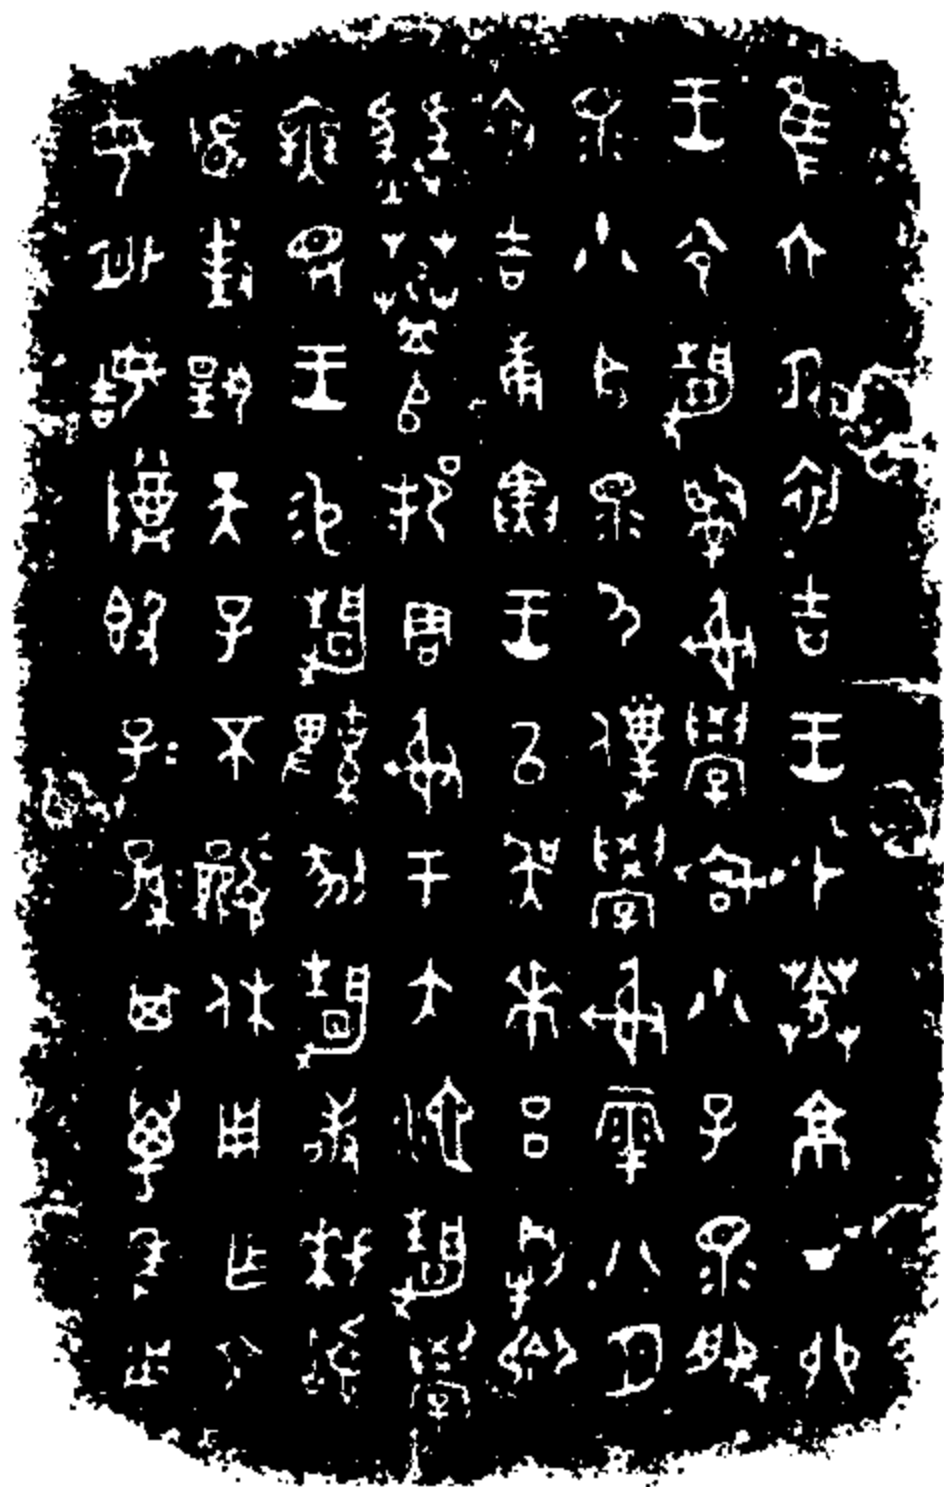 隹六月初吉王才䒤京丁卯
王令靜𤔲射學宮小子眔服
眔小臣眔尸僕學射雩八月
初吉庚寅王㠯吳𠦪呂剛
豳師邦周射于大池靜學
無王易靜鞞剢靜敢拜𩒨
首對揚天子不顯休用乍文
母外姞尊簋子子孫孫其萬年用